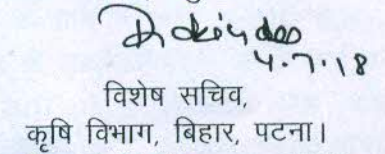 4.7.18
विशेष सचिव,
कृषि विभाग, बिहार, पटना।